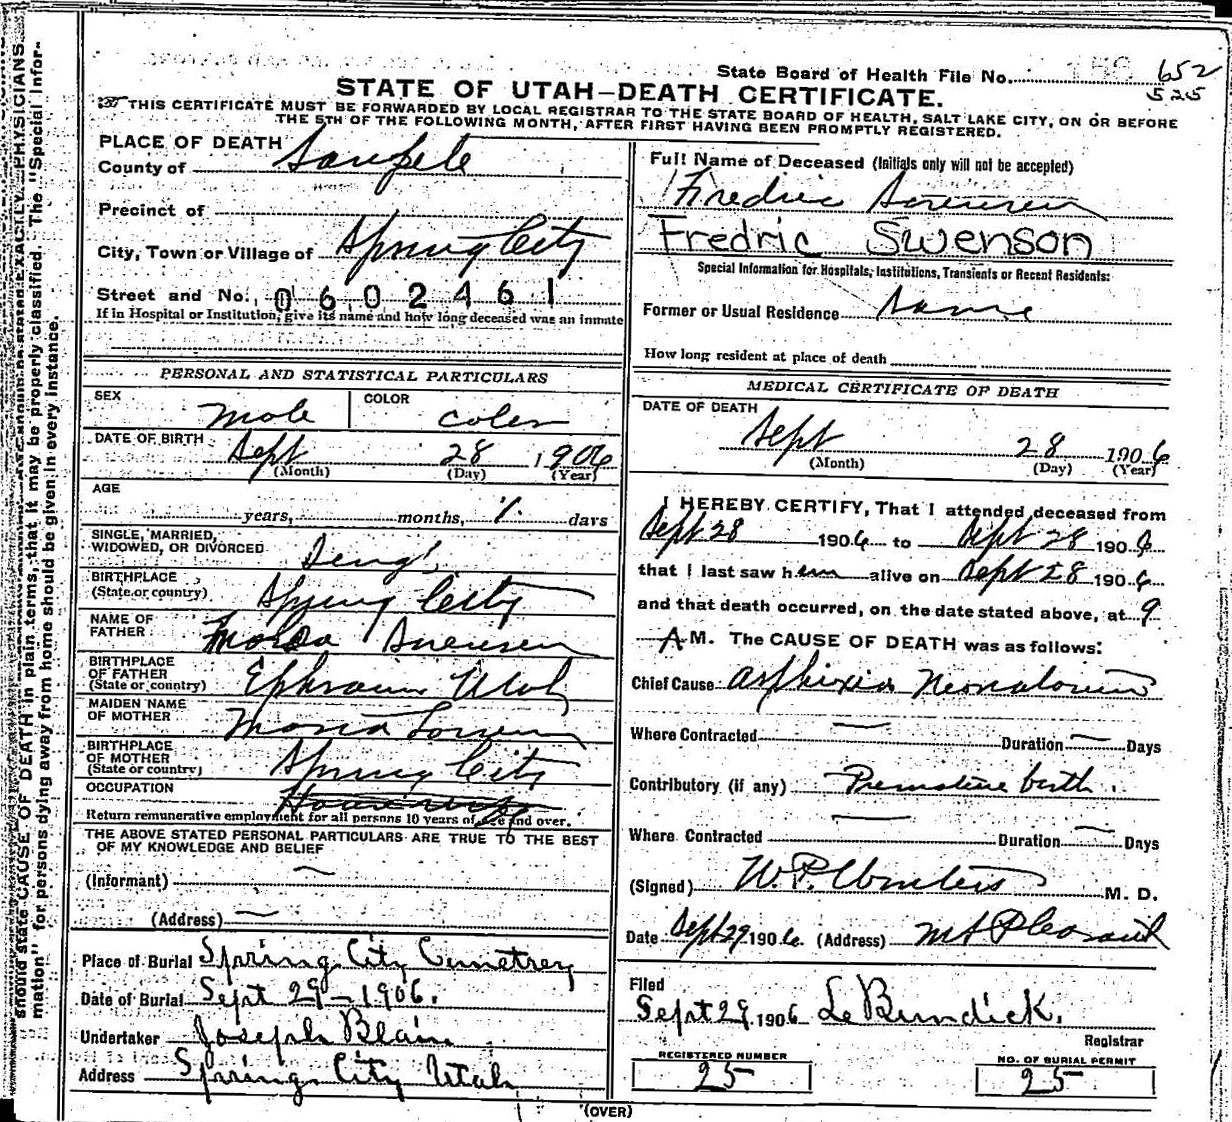 State Board of Health File No. 652
525
STATE OF UTAH—DEATH CERTIFICATE.
THIS CERTIFICATE MUST BE FORWARDED BY LOCAL REGISTRAR TO THE STATE BOARD OF HEALTH, SALT LAKE CITY, ON OR BEFORE
THE 5TH OF THE FOLLOWING MONTH, AFTER FIRST HAVING BEEN PROMPTLY REGISTERED.
PLACE OF DEATH
County of Sanpete
Precinct of
City, Town or Village of Spring City
Street and No. 0602461
If in Hospital or Institution, give its name and how long deceased was an inmate
PERSONAL AND STATISTICAL PARTICULARS
SEX male COLOR
DATE OF BIRTH Sept 28 1906
(Month) (Day) (Year)
AGE
years, months, days
SINGLE, MARRIED,
WIDOWED, OR DIVORCED
BIRTHPLACE
(State or country) Spring City
NAME OF
FATHER
BIRTHPLACE
OF FATHER
(State or country) Ephraim Utah
MAIDEN NAME
OF MOTHER
BIRTHPLACE
OF MOTHER
(State or country) Spring City
OCCUPATION
Return remunerative employment for all persons 10 years of age and over.
THE ABOVE STATED PERSONAL PARTICULARS ARE TRUE TO THE BEST
OF MY KNOWLEDGE AND BELIEF
(Informant) —
(Address) —
Place of Burial Spring City Cemetrey
Date of Burial Sept 29 – 1906.
Undertaker Joseph Blain
Address Spring City Utah
Full Name of Deceased (Initials only will not be accepted)
Fredric Sorensen
Fredric Swenson
Special Information for Hospitals, Institutions, Transients or Recent Residents:
Former or Usual Residence Same
How long resident at place of death
MEDICAL CERTIFICATE OF DEATH
DATE OF DEATH
Sept 28 1906
(Month) (Day) (Year)
I HEREBY CERTIFY, That I attended deceased from
Sept 28 1906 to Sept 28 1906
that I last saw him alive on Sept 28 1906
and that death occurred, on the date stated above, at 9
A M. The CAUSE OF DEATH was as follows:
Chief Cause Asphixia Neonatorum
Where Contracted — Duration — Days
Contributory (if any) Premature birth.
Where Contracted — Duration — Days
(Signed) W. P. Winters M. D.
Date Sept 29 1906 (Address) Mt Pleasant
Filed
Sept 29 1906
Registrar
REGISTERED NUMBER
25
NO. OF BURIAL PERMIT
25
(OVER)
should state CAUSE OF DEATH in plain terms, that it may be properly classified. The "Special Infor-
mation" for persons dying away from home should be given in every instance.